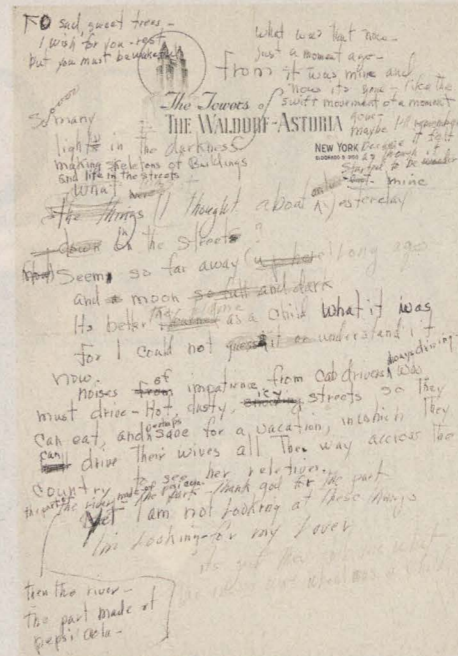 O sad, sweet trees -
I wish for you - rest
but you must be wakeful
What was that now -
just a moment ago -
it was mine and
now its gone - like the
swift movement of a moment
gone -
maybe I'll remember
because it felt
as though it
started to be
mine
The Towers of
THE WALDORF-ASTORIA
NEW YORK
So many
lights in the darkness
making skeletons of buildings
and life in the streets
What
the things I thought about yesterday
down in the streets ?
Seems so far away long ago
and moon so full and dark
Its better as a child what it was
for I could not guess it or understand it
now.
noises of from impatience from cab drivers always driving who
must drive - Hot, dusty, icy streets so they
can eat, and perhaps save for a vacation, in which they
can drive their wives all the way across the
country to see her relatives.
the river made of
the park - thank god for the park
Yet I am not looking at these things
I'm looking for my lover
then the river -
the part made of
pepsi cola -